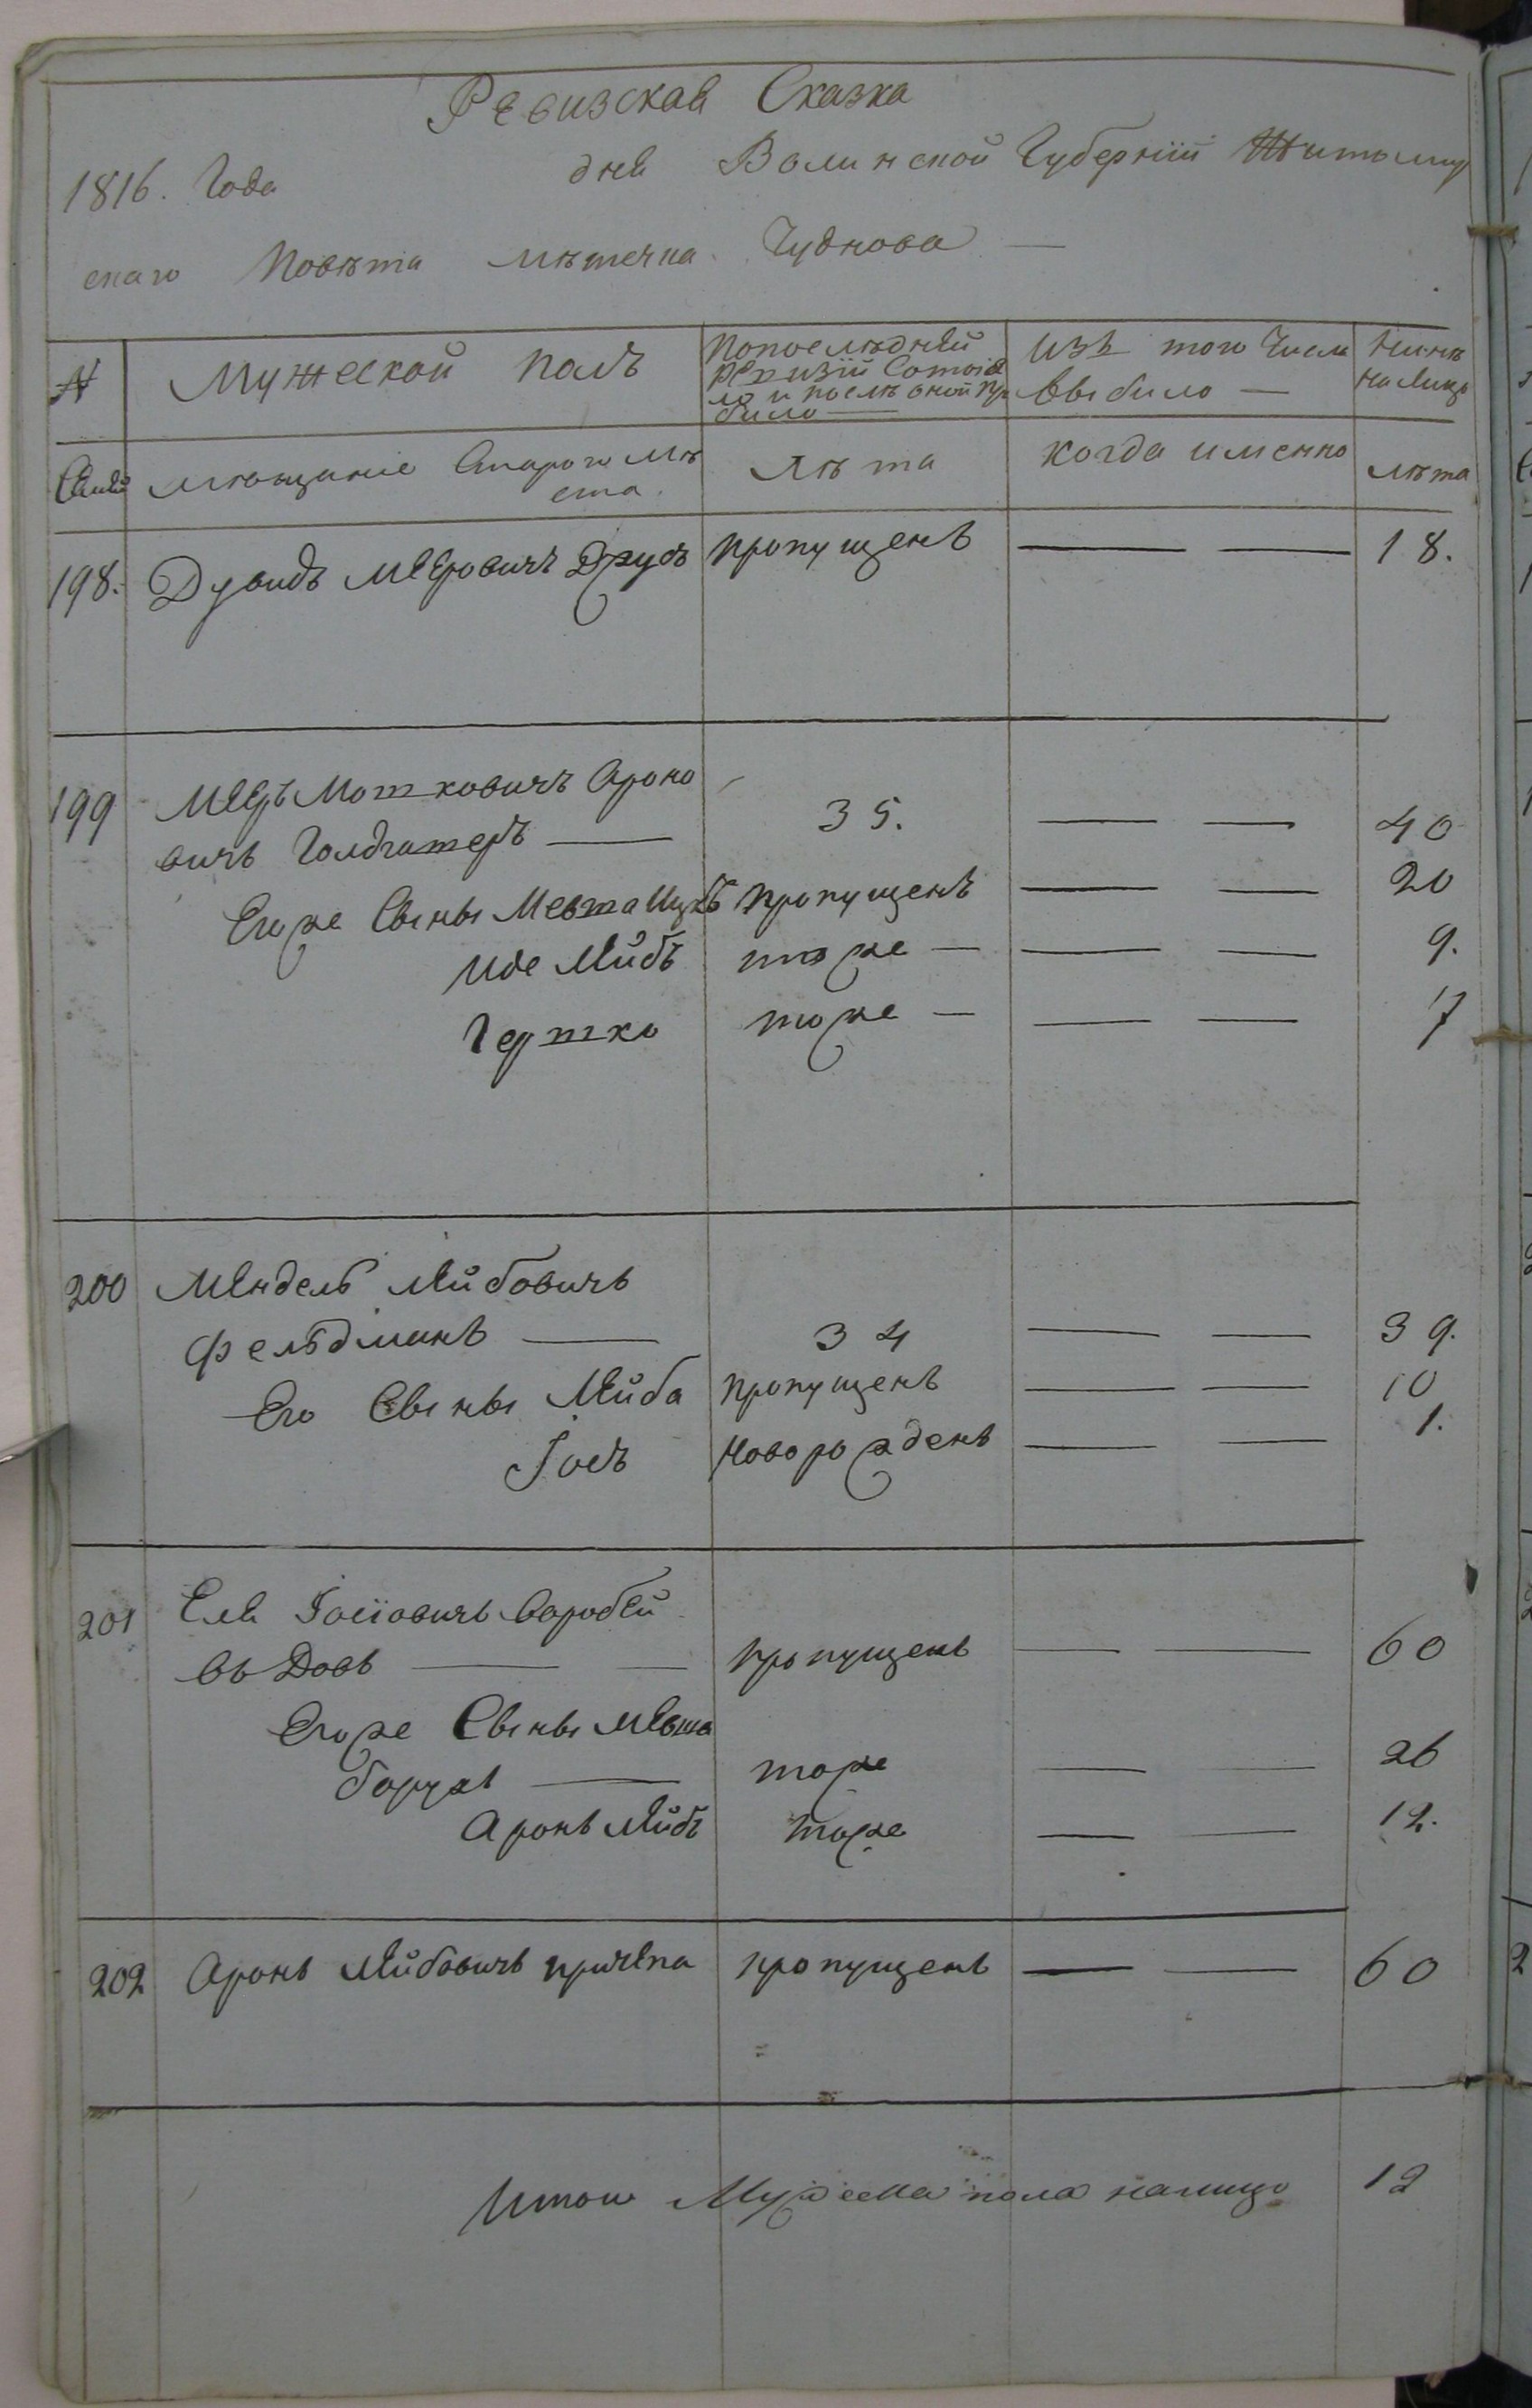 Ревизская Сказка
1816. Года дня Волинской Губернiи Житомир
скаго Повѣта мѣстечка Чуднова —
№ Мужеской полъ Попослѣдней ревизiи Состоя ло и послѣ оной при било — Изъ того Числа выбило — Нинѣ налицо
Семей мѣщание Старого мѣ ста. Лѣта когда именно лѣта
198. Дувидъ Меровичъ пропущенъ — — 18.
199 Меръ Мошковичъ Ароно
вичъ — 35. — — 40
Егоже Сыны пропущенъ — — 20
Иде Лейбъ тоже — — — 9.
Гершко тоже — — — 7
200 Мендель Лейбовичъ
Фельдманъ — 34 — — 39.
Его Сыны Лейба пропущенъ — — 10
Iосъ Новорожденъ — — 1.
201 Еля Iосiовичъ Воробей
въ Довъ — — пропущенъ — — 60
Егоже Сыны
борухъ — тоже — — 26
Аронъ Лейбъ тоже — — 12.
202 Аронъ Лейбовичъ причепа пропущенъ — — 60
Итого Мужеска пола налицо 12